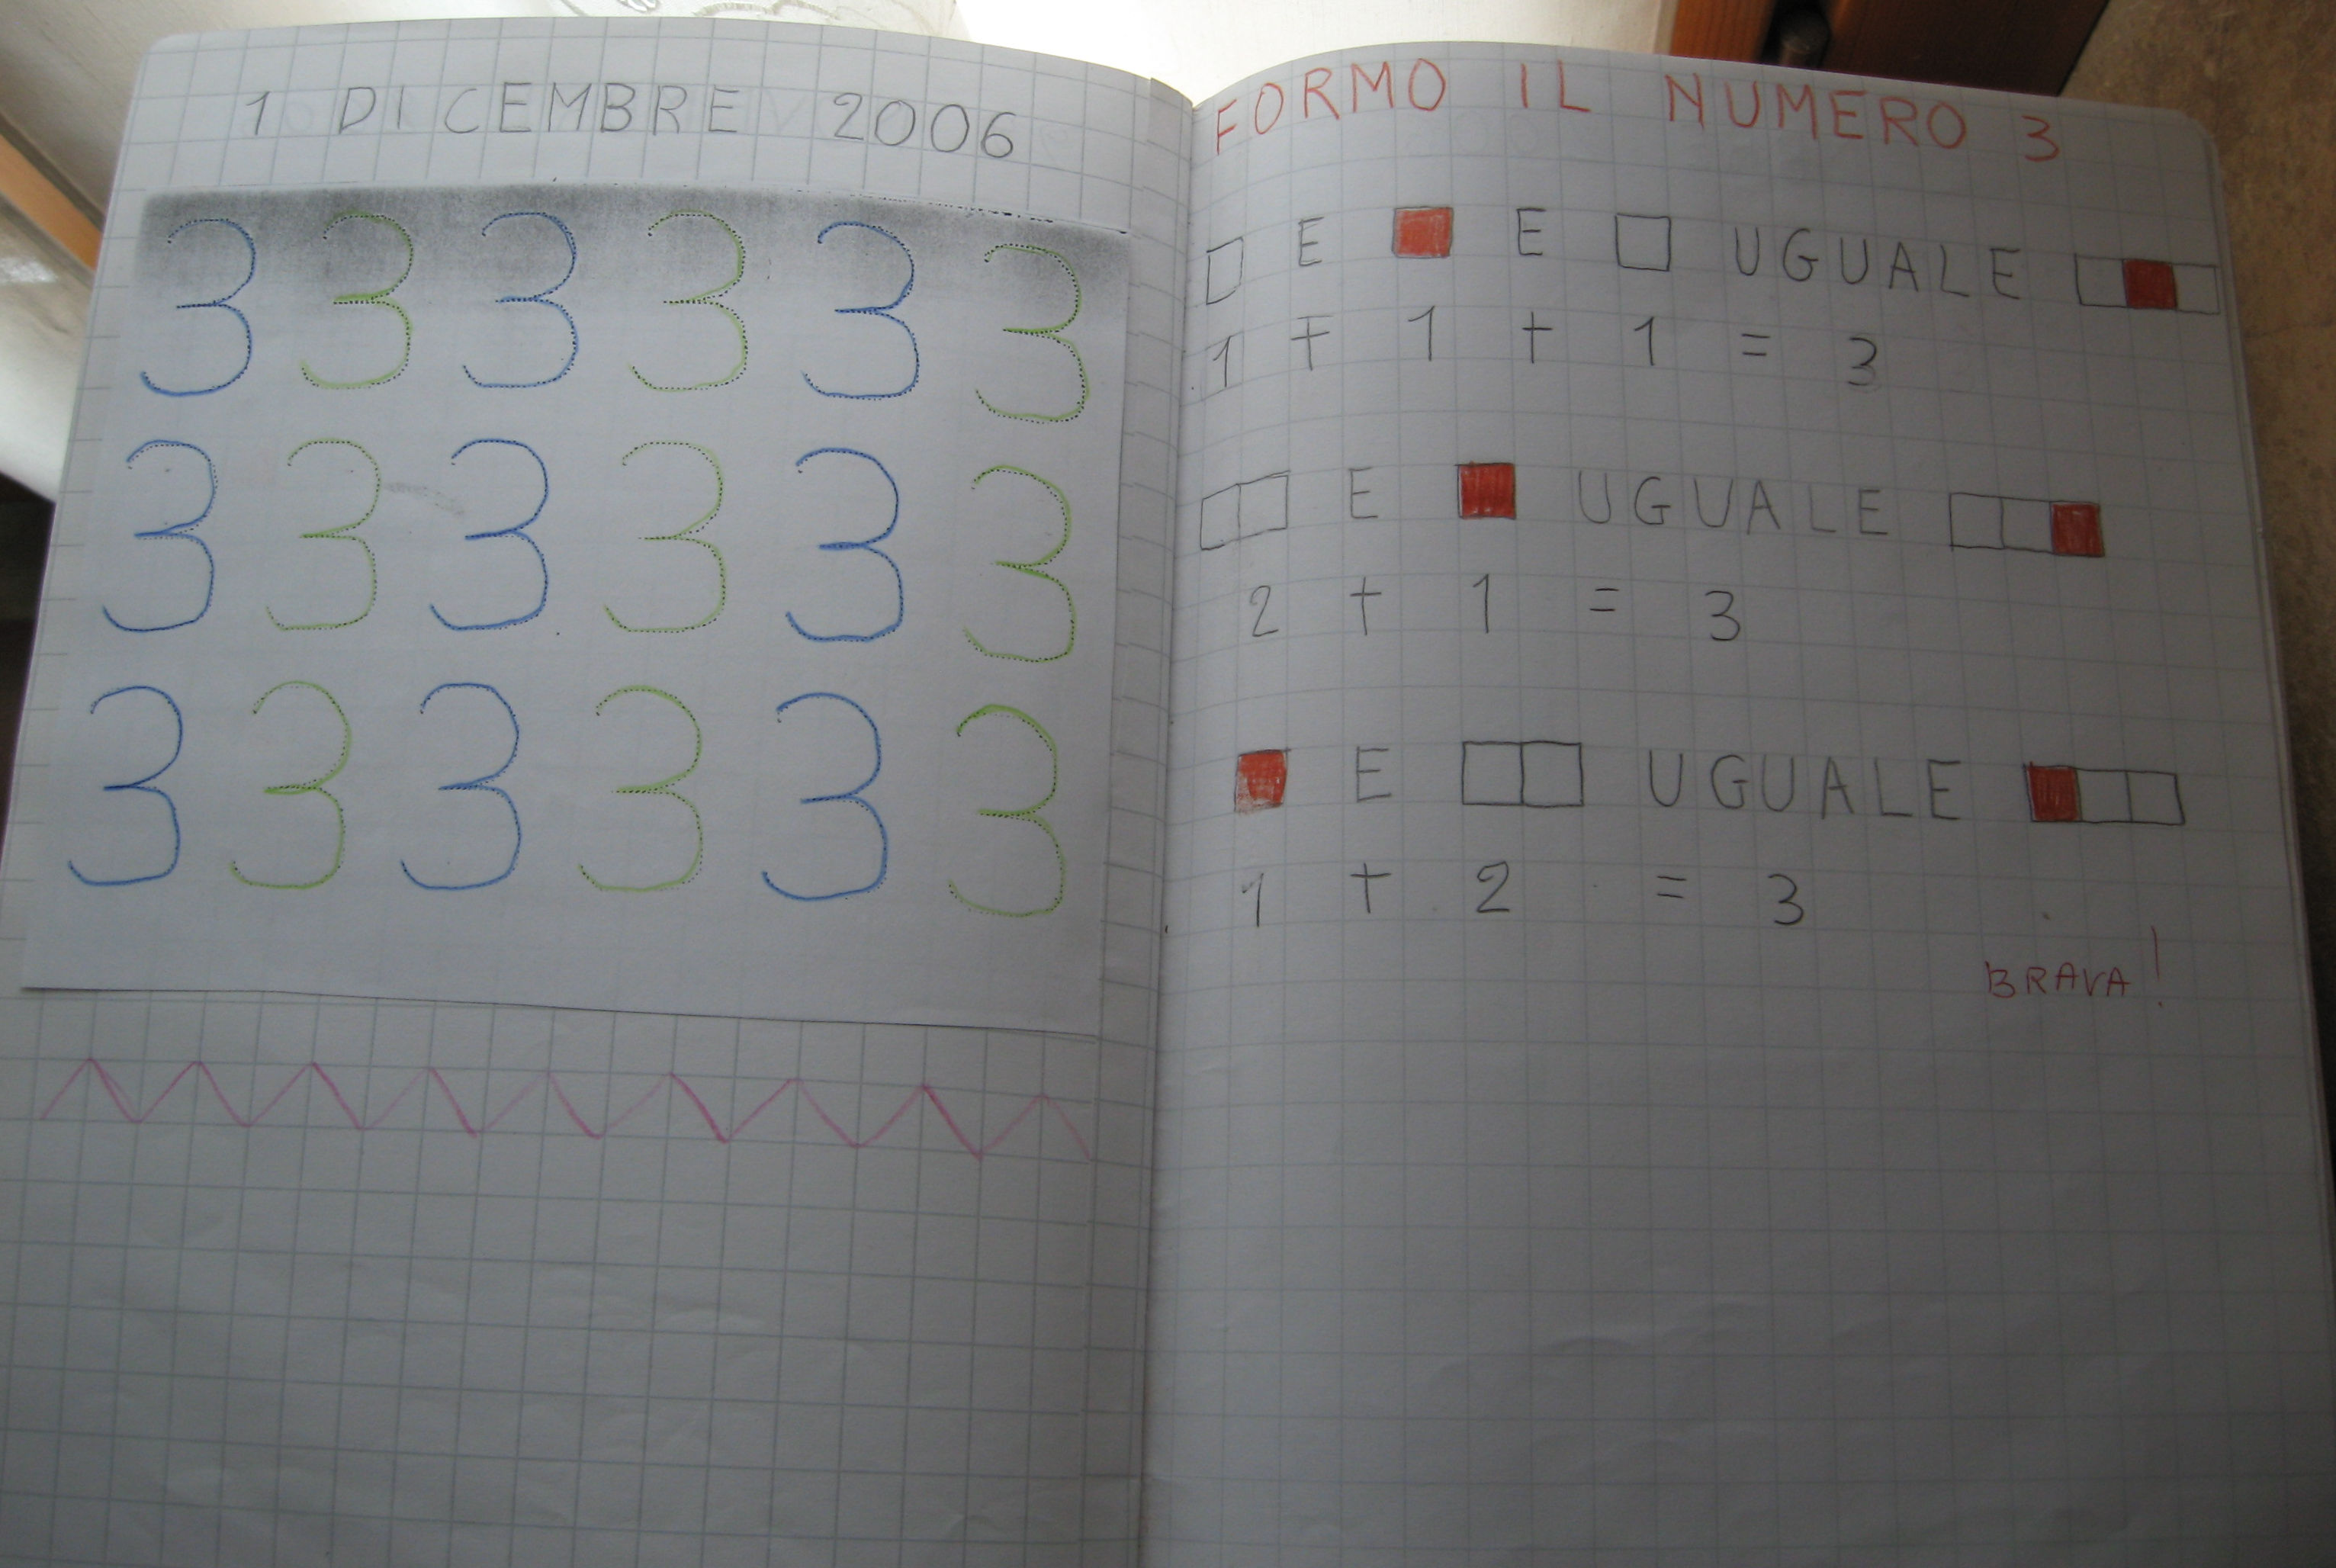 1 DICEMBRE 2006
3 3 3 3 3 3
3 3 3 3 3 3
3 3 3 3 3 3
FORMO IL NUMERO 3
E E UGUALE
1 + 1 + 1 = 3
E UGUALE
2 + 1 = 3
E UGUALE
1 + 2 = 3
BRAVA!